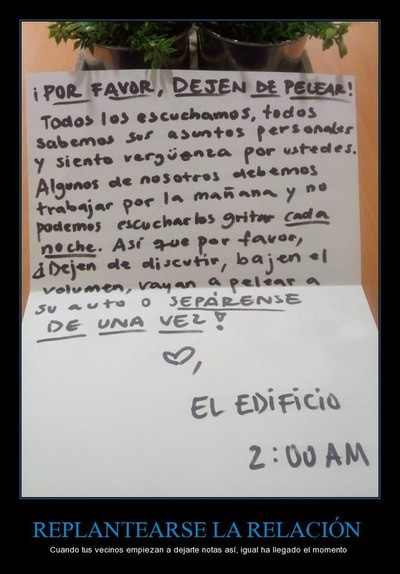 ¡POR FAVOR, DEJEN DE PELEAR!
Todos los escuchamos, todos
sabemos sus asuntos personales
y siento vergüenza por ustedes.
Algunos de nosotros debemos
trabajar por la mañana y no
podemos escucharlos gritar cada
noche. Así que por favor,
¡Dejen de discutir, bajen el
volumen, vayan a pelear a
su auto o SEPÁRENSE
DE UNA VEZ!
♡,
EL EDIFICIO
2:00 AM
REPLANTEARSE LA RELACIÓN
Cuando tus vecinos empiezan a dejarte notas así, igual ha llegado el momento